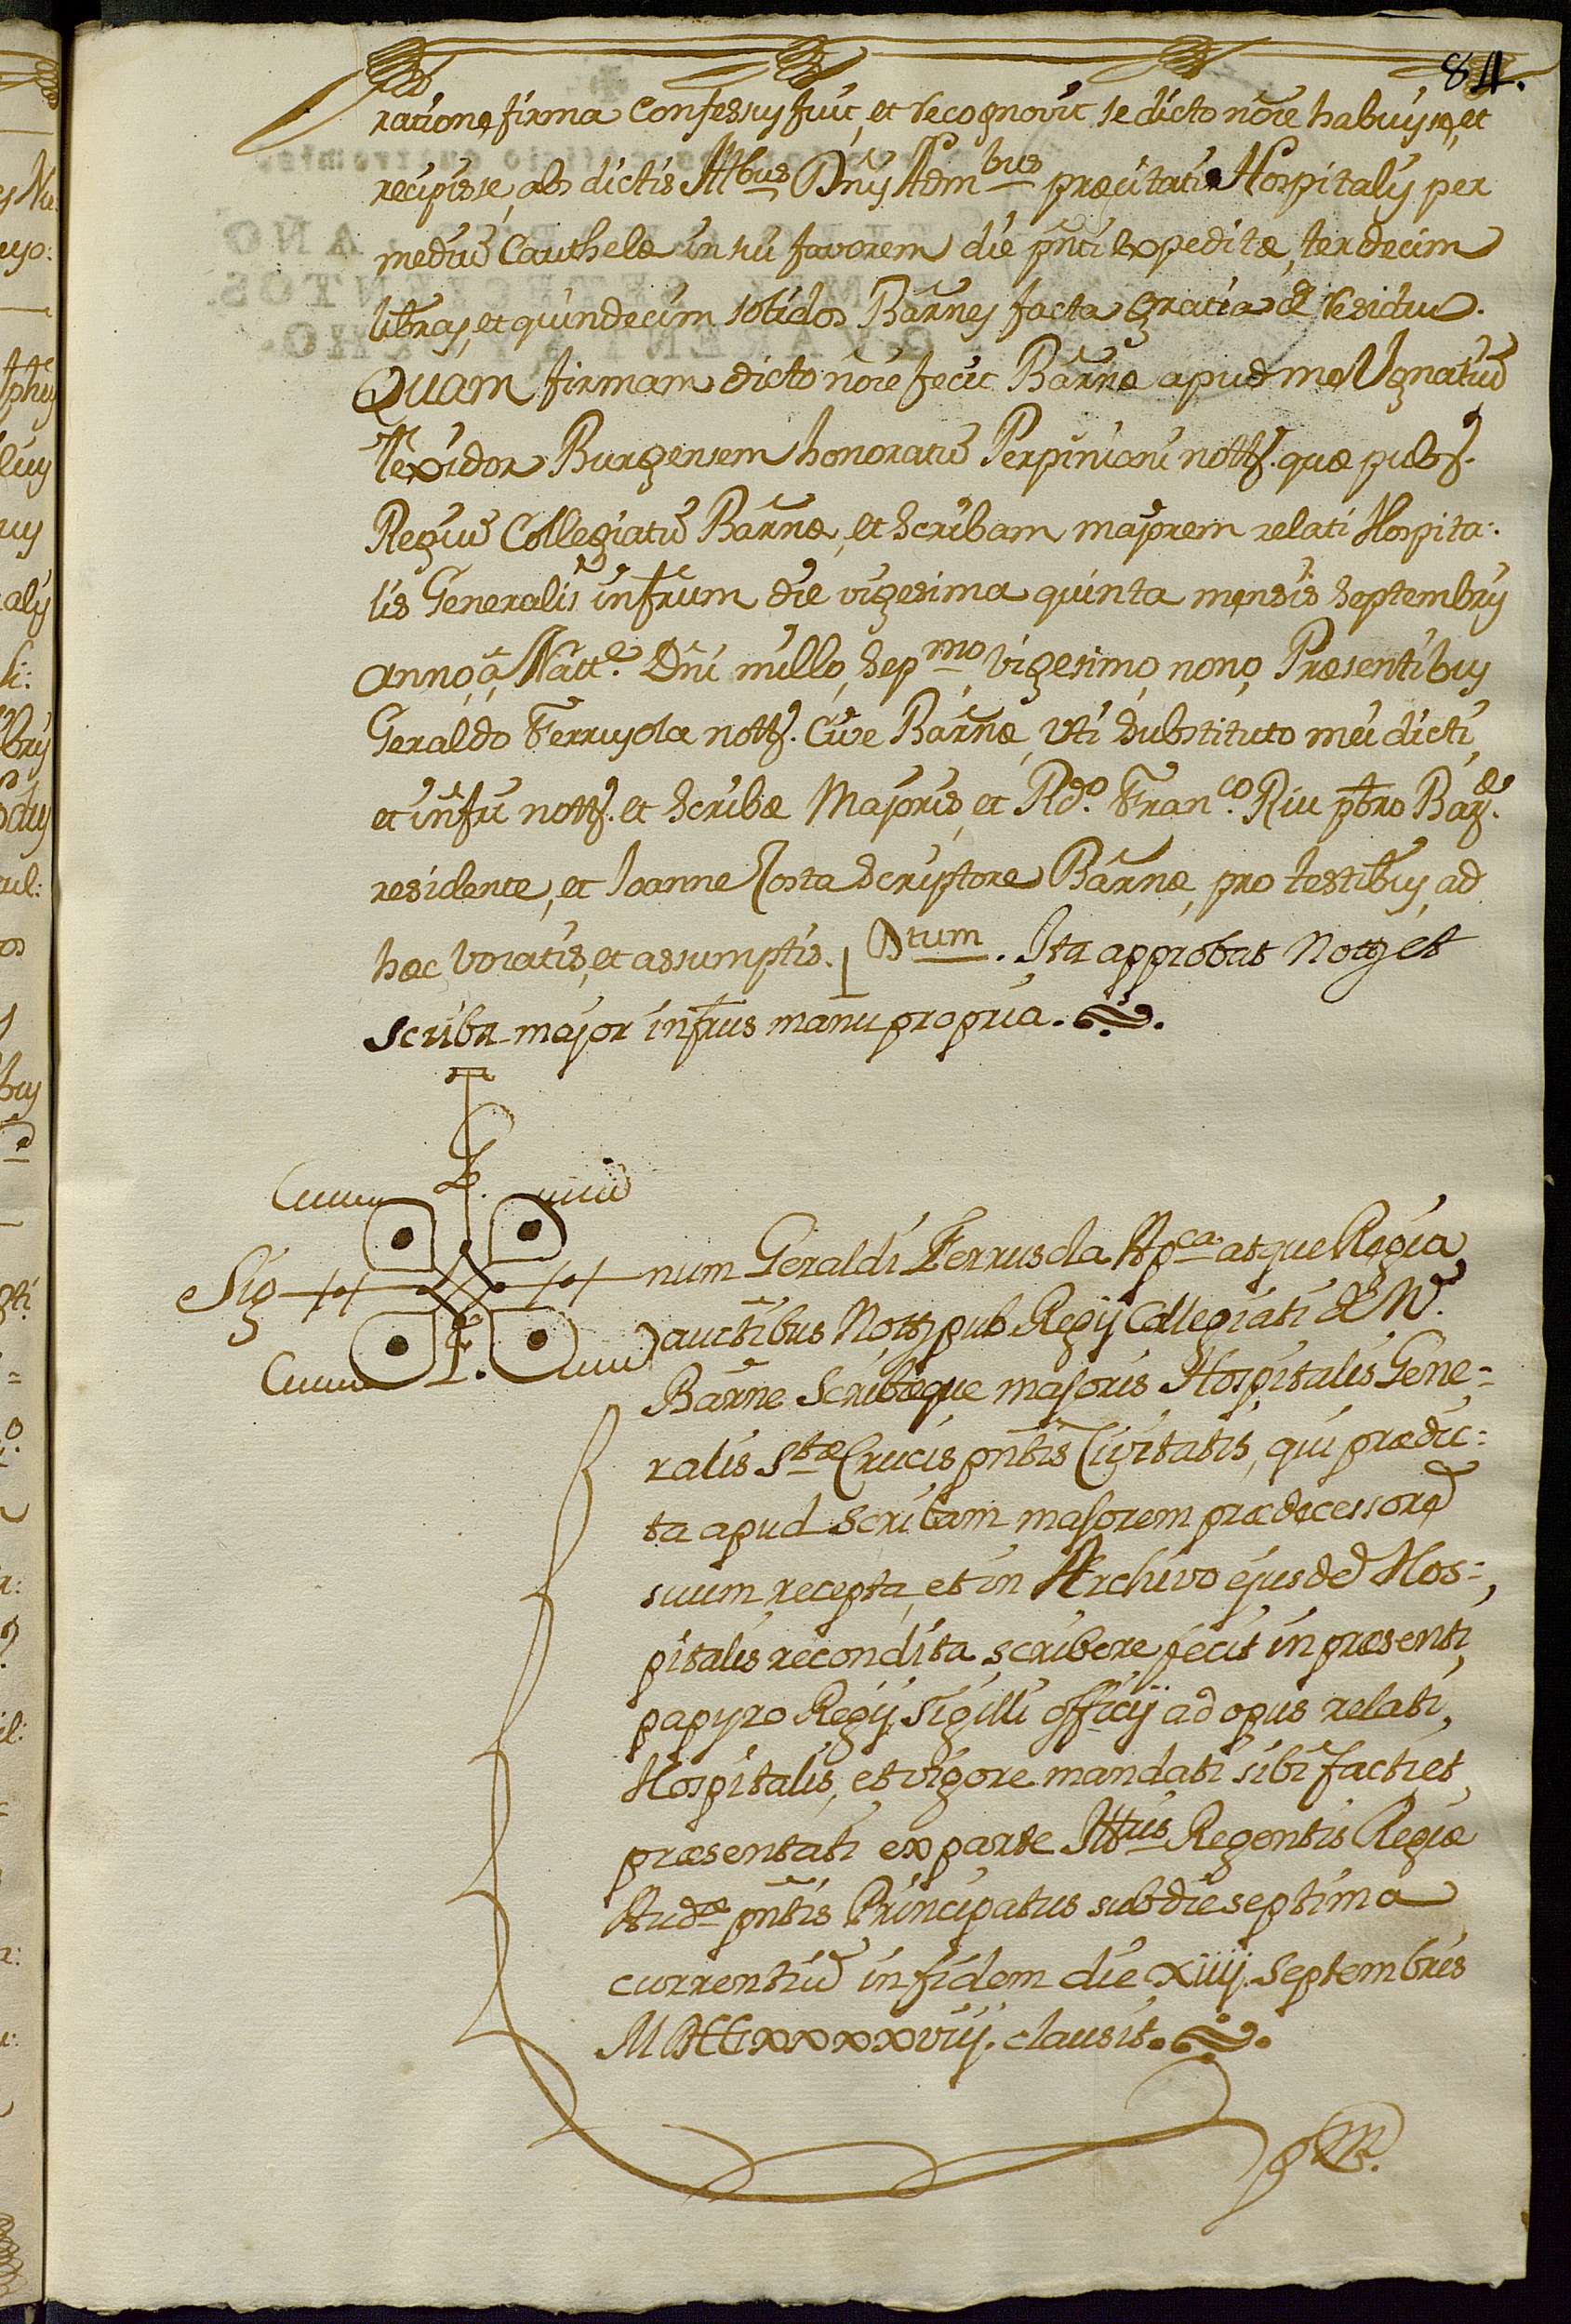 84.
ratione firma confessus fuit, et recognovit se dicto nõie habuisse, et
recepisse, ab dictis Illbus Dnis Admbus præcitatis Hospitalis per
mediũ Cauthelæ in sui favorem die pñti expeditæ, terdecim
libras, et quindecim solidos Barñes facta gratia de residuo.
Quam firmam dicto nõie fecit Barñe apud me Ignatiũ
Texidor Burgensem honoratũ Perpiniani notts. quæ pubs.
Regiũ Collegiatũ Barñæ, et Scribam majorem relati Hospita:
lis Generalis infrum die vigesima quinta mensis Septembris
anno, â, Natte. Dñi millo, Sepmo, vigesimo, nono, Præsentibus
Geraldo Ferrusola notts. Cive Barñæ, Uti Substituto mei dicti,
et infri notts. et Scribæ Majoris, et Rdo. Franco. Riu pbro Bare.
residente, et Joanne Costa Scriptore Barñæ, pro testibus, ad
hæc vocatis, et assumptis. Dtum. Ita approbat Notts et
scriba major infrus manu propria.
Sig num Geraldi Ferrusola Apca. atque Regia
auctibus Notts pub Regij Collegiati de No.
Barñe Scribæque majoris Hospitalis Gene=
ralis Stæ Crucis pñtis Civitatis, qui prædic:
ta apud Scribam majorem prædecessorẽ
suum recepta, et in Archivo ejusdẽ Hos=
pitalis recondita scribere fecit in præsenti,
papyro Regij Sigilli officij ad opus relati,
Hospitalis, et vigore mandati sibi facti et
præsentati ex parte Illtris Regentis Regiæ
Audæ pñtis Principatus sub die septima
currentiũ in fidem die xiiij. Septembris
MDCCxxxxviij. clausit.